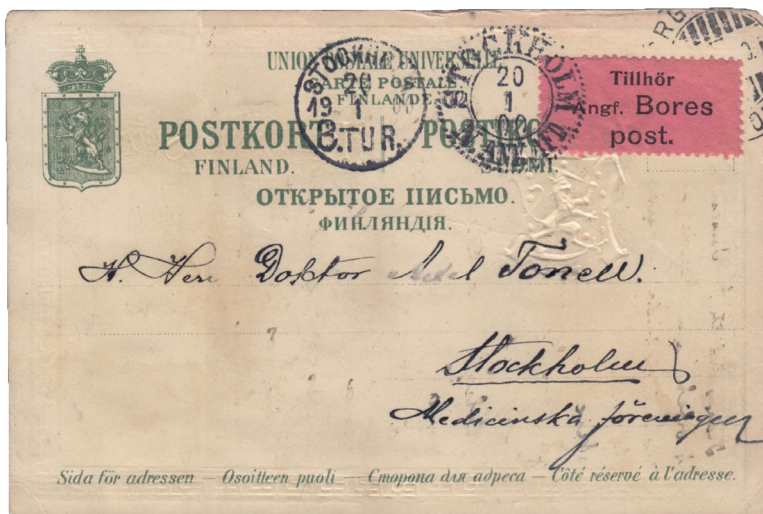 UNION POSTALE UNIVERSELLE
CARTE POSTALE
FINLANDE
POSTKORT
FINLAND.
ОТКРЫТОЕ ПИСЬМО.
ФИНЛЯНДІЯ.
STOCKHOLM
20
19 1 00
3.TUR.
STOCKHOLM
20
1
00
Tillhör
Ångf. Bores
post.
H. Herr Doktor Axel Tonell.
Stockholm
Medicinska föreningen
Sida för adressen — Osoitteen puoli — Сторона для адреса — Côté réservé à l'adresse.